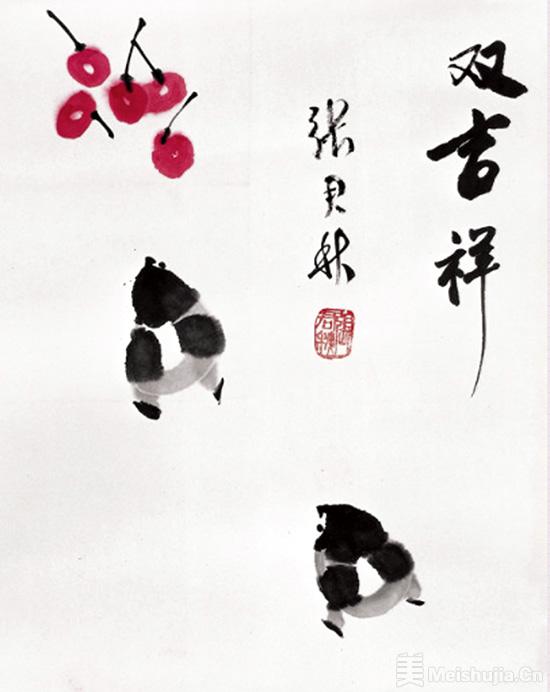 双吉祥
张君秋
美 Meishujia.Cn